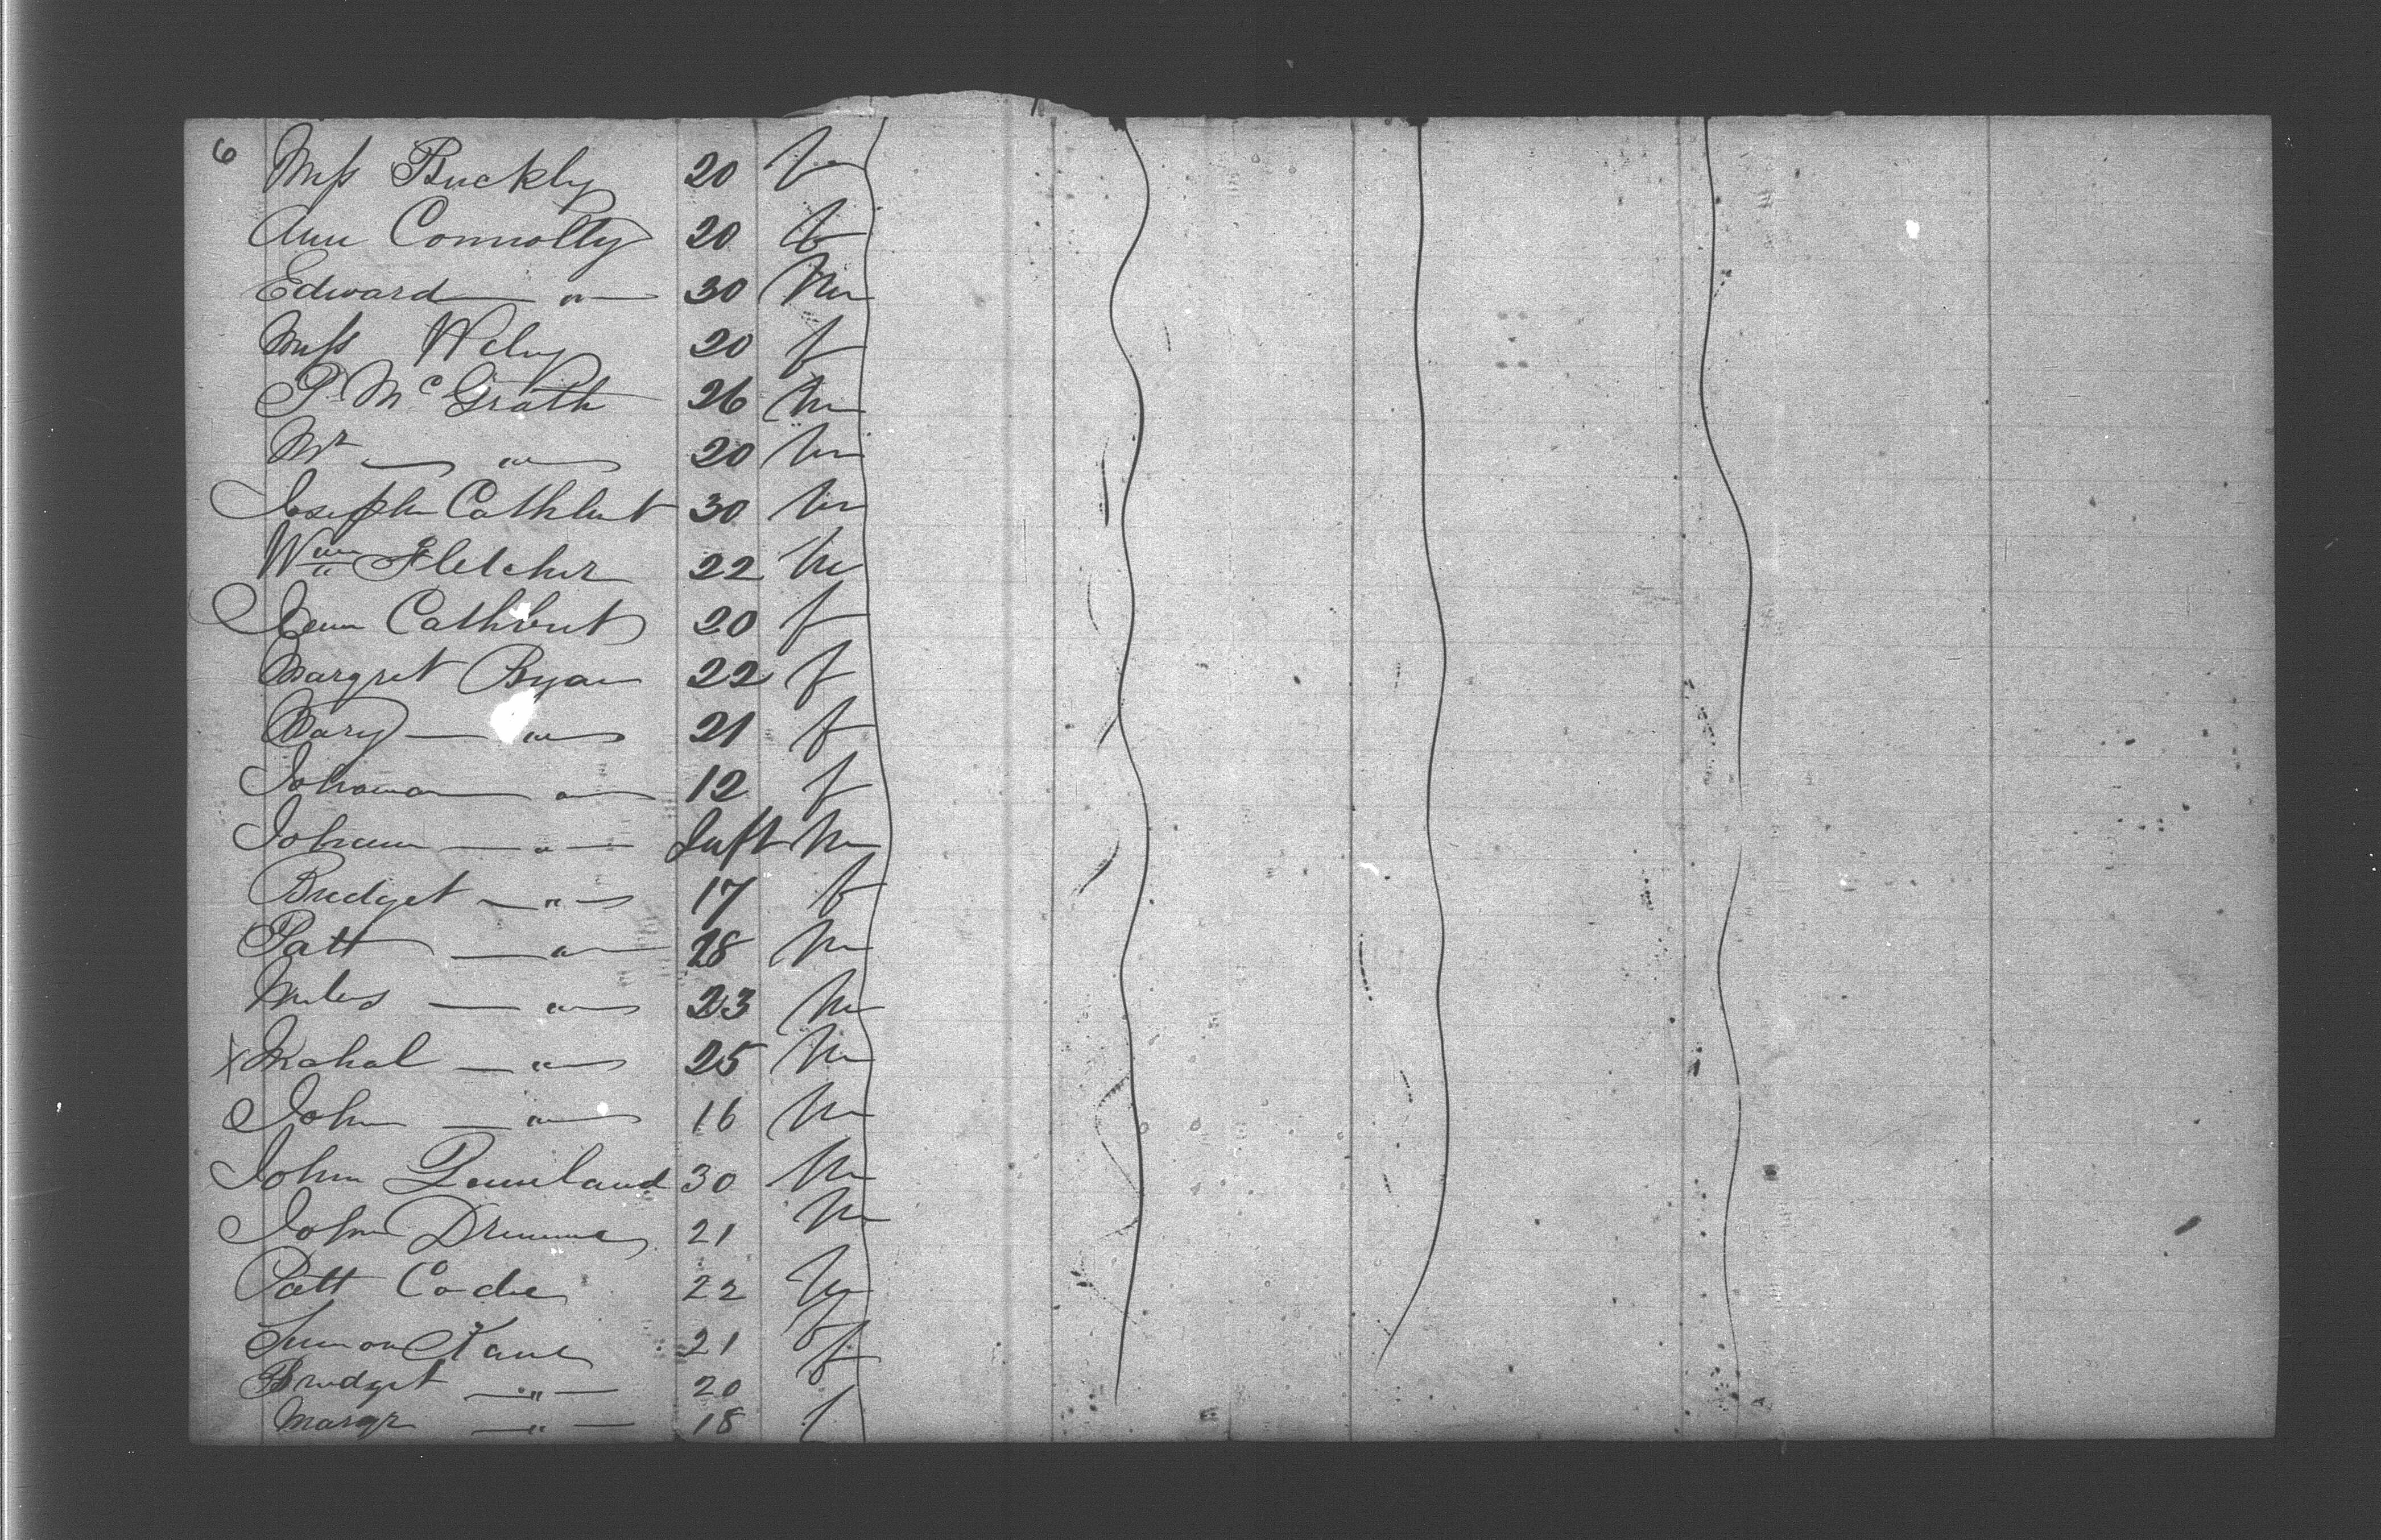 6
Miss Buckly 20 f
Ann Connolly 20 f
Edward — " — 30 m
Miss 20 f
P. McGrath 26 m
Mr — " — 20 m
Joseph Cathbut 30 m
Wm Fletcher 22 m
Cathbut 20 f
Margret Ryan 22 f
Mary — " — 21 f
Johanna — " — 12 f
— " — Inft m
Bridget — " — 17 f
Patt — " — 28 m
Miles — " — 23 m
X — " — 25 m
John — " — 16 m
John 30 m
John 21 m
Patt Codie 22 m
Kane 21 f
Bridget — " — 20 f
Margr — " — 18 f